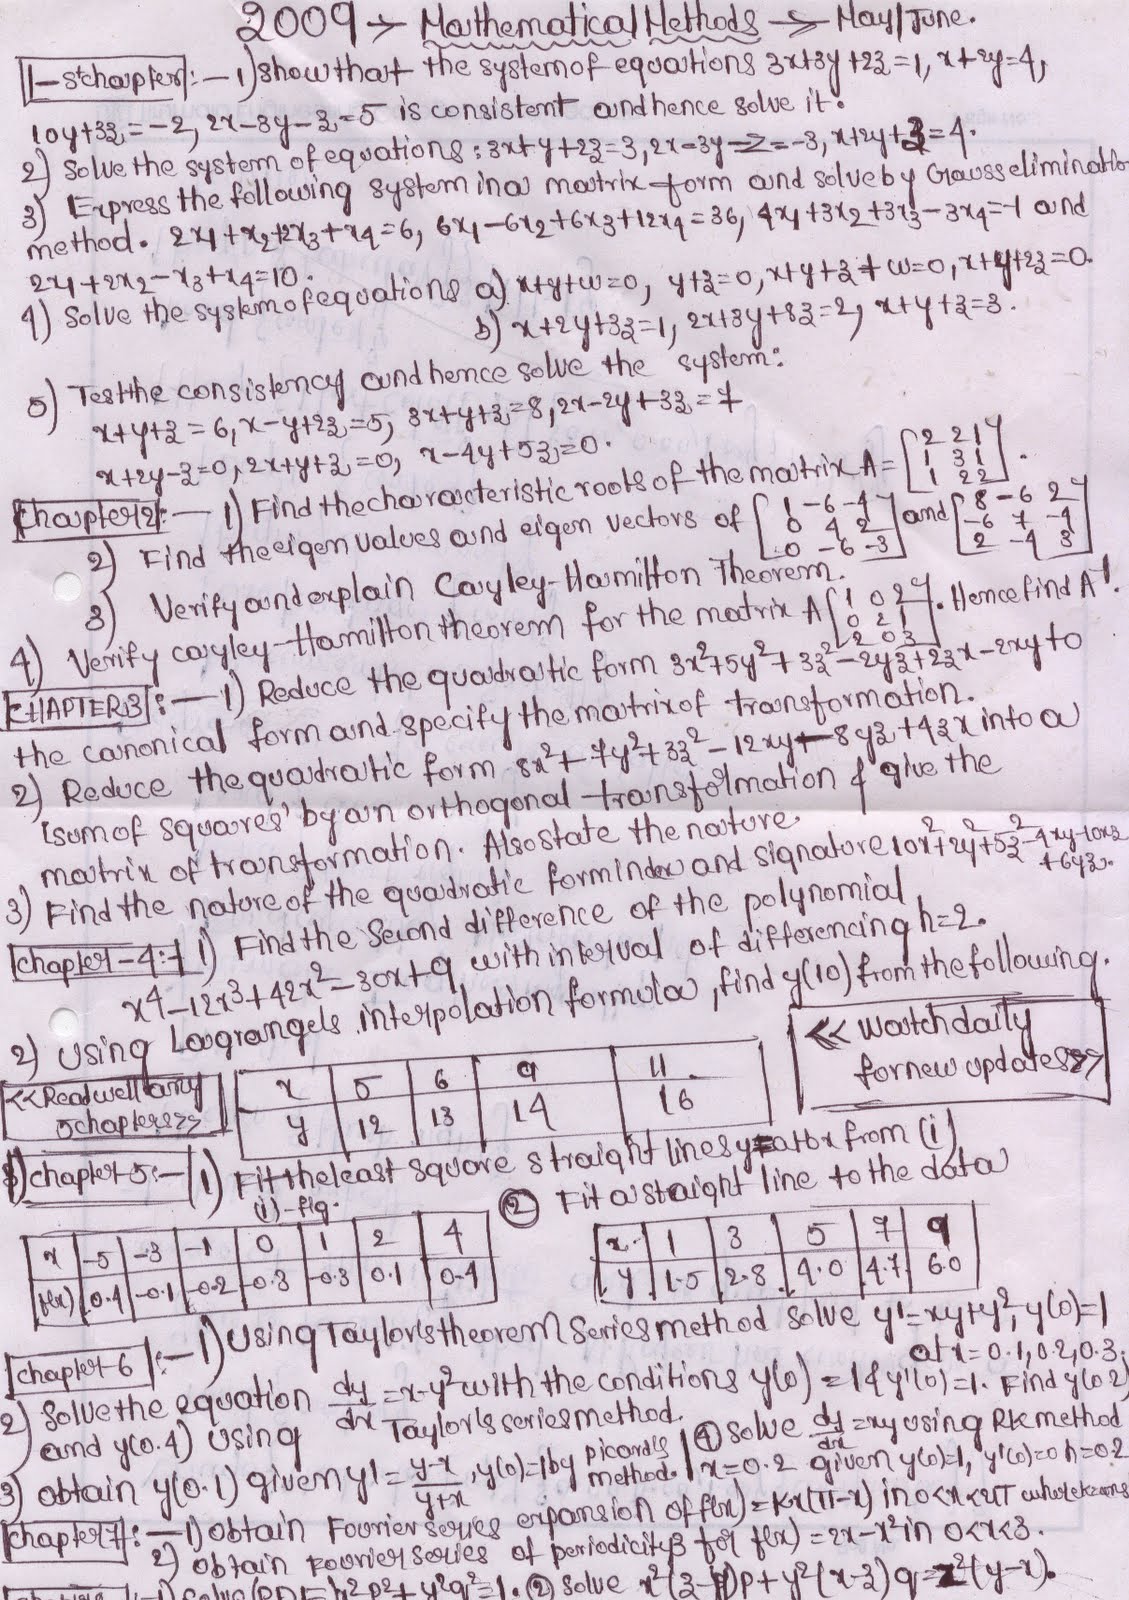 2009 → Mathematical Methods → May/June.
1-st chapter :- 1) show that the system of equations 3x+3y+2z=1, x+2y=4,
10y+3z=-2, 2x-3y-z=5 is consistent and hence solve it.
2) Solve the system of equations : 3x+y+2z=3, 2x-3y-z=-3, x+2y+z=4.
3) Express the following system in a matrix form and solve by Gauss elimination
method. 2x1+x2+2x3+x4=6, 6x1-6x2+6x3+12x4=36, 4x1+3x2+3x3-3x4=-1 and
2x1+2x2-x3+x4=10.
4) Solve the system of equations a) x+y+w=0, y+z=0, x+y+z+w=0, x+y+2z=0.
b) x+2y+3z=1, 2x+3y+8z=2, x+y+z=3.
5) Test the consistency and hence solve the system:
x+y+z=6, x-y+2z=5, 3x+y+z=8, 2x-2y+3z=7
x+2y-z=0, 2x+y+z=0, x-4y+5z=0.
Chapter 2 :- 1) Find the characteristic roots of the matrix A= [2 2 1
1 3 1
1 2 2].
2) Find the eigen values and eigen vectors of [1 -6 -4
0 4 2
0 -6 -3] and [8 -6 2
-6 7 -4
2 -4 3]
3) Verify and explain Cayley-Hamilton Theorem.
4) Verify cayley-Hamilton theorem for the matrix A [1 0 2
0 2 1
2 0 3]. Hence find A⁻¹.
CHAPTER3 :- 1) Reduce the quadratic form 3x²+5y²+3z²-2yz+2zx-2xy to
the canonical form and specify the matrix of transformation.
2) Reduce the quadratic form 8x²+7y²+3z²-12xy-8yz+4zx into a
'sum of squares' by an orthogonal transformation & give the
matrix of transformation. Also state the nature.
3) Find the nature of the quadratic form index and signature 10x²+2y²+5z²-4xy-10xz
+6yz.
chapter-4:- 1) Find the Second difference of the polynomial
x⁴-12x³+42x²-30x+9 with interval of differencing h=2.
2) Using Lagrange's interpolation formula, find y(10) from the following.
<< Watch daily
for new updates>>
<<Read well any
5 chapters>>
x 5 6 9 11
y 12 13 14 16
chapter 5:- 1) Fit the least square straight lines y=a+bx from (i)
(i)-fig.
② Fit a staight line to the data
x -5 -3 -1 0 1 2 4
f(x) 0.4 -0.1 -0.2 -0.3 -0.3 0.1 0.4
x 1 3 5 7 9
y 1.5 2.8 4.0 4.7 6.0
chapter 6 :- 1) Using Taylor's theorem Series method solve y'=xy+y², y(0)=1
at x=0.1, 0.2, 0.3.
2) Solve the equation dy/dx=x-y² with the conditions y(0)=1 & y'(0)=1. Find y(0.2)
and y(0.4) using Taylor's series method.
3) obtain y(0.1) given y'=y-x/y+x, y(0)=1 by picard's method.
④ Solve dy/dx=xy using RK method
x=0.2 given y(0)=1, y'(0)=0 h=0.2
chapter 7 :- 1) obtain Fourier series expansion of f(x)=kx(π-x) in 0<x<2π
2) obtain Fourier series of periodicity 3 for f(x)=2x-x² in 0<x<3.
1) Solve x²p²+y²q²=1. ② Solve x²(z-y)p+y²(x-z)q=z²(y-x).